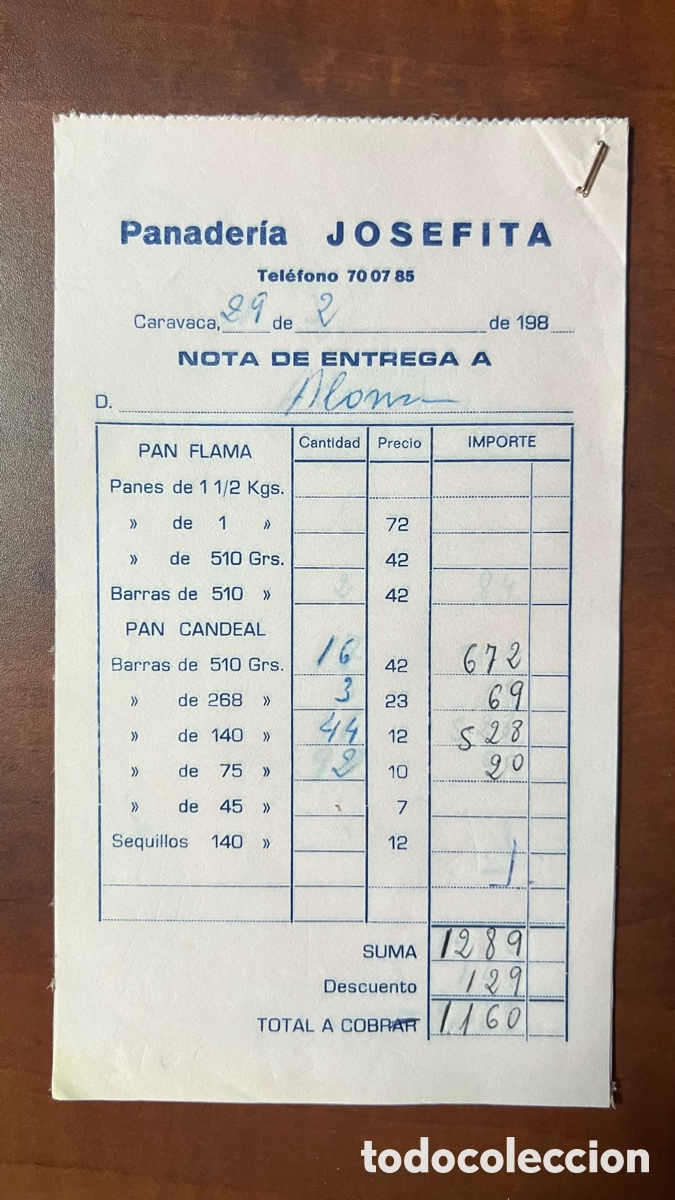 Panadería JOSEFITA
Teléfono 70 07 85
Caravaca, 29 de 2 de 198
NOTA DE ENTREGA A
D.
PAN FLAMA Cantidad Precio IMPORTE
Panes de 1 1/2 Kgs.
» de 1 » 72
» de 510 Grs. 42
Barras de 510 » 2 42 84
PAN CANDEAL
Barras de 510 Grs. 16 42 672
» de 268 » 3 23 69
» de 140 » 44 12 528
» de 75 » 2 10 20
» de 45 » 7
Sequillos 140 » 12
SUMA 1289
Descuento 129
TOTAL A COBRAR 1.160
todocoleccion